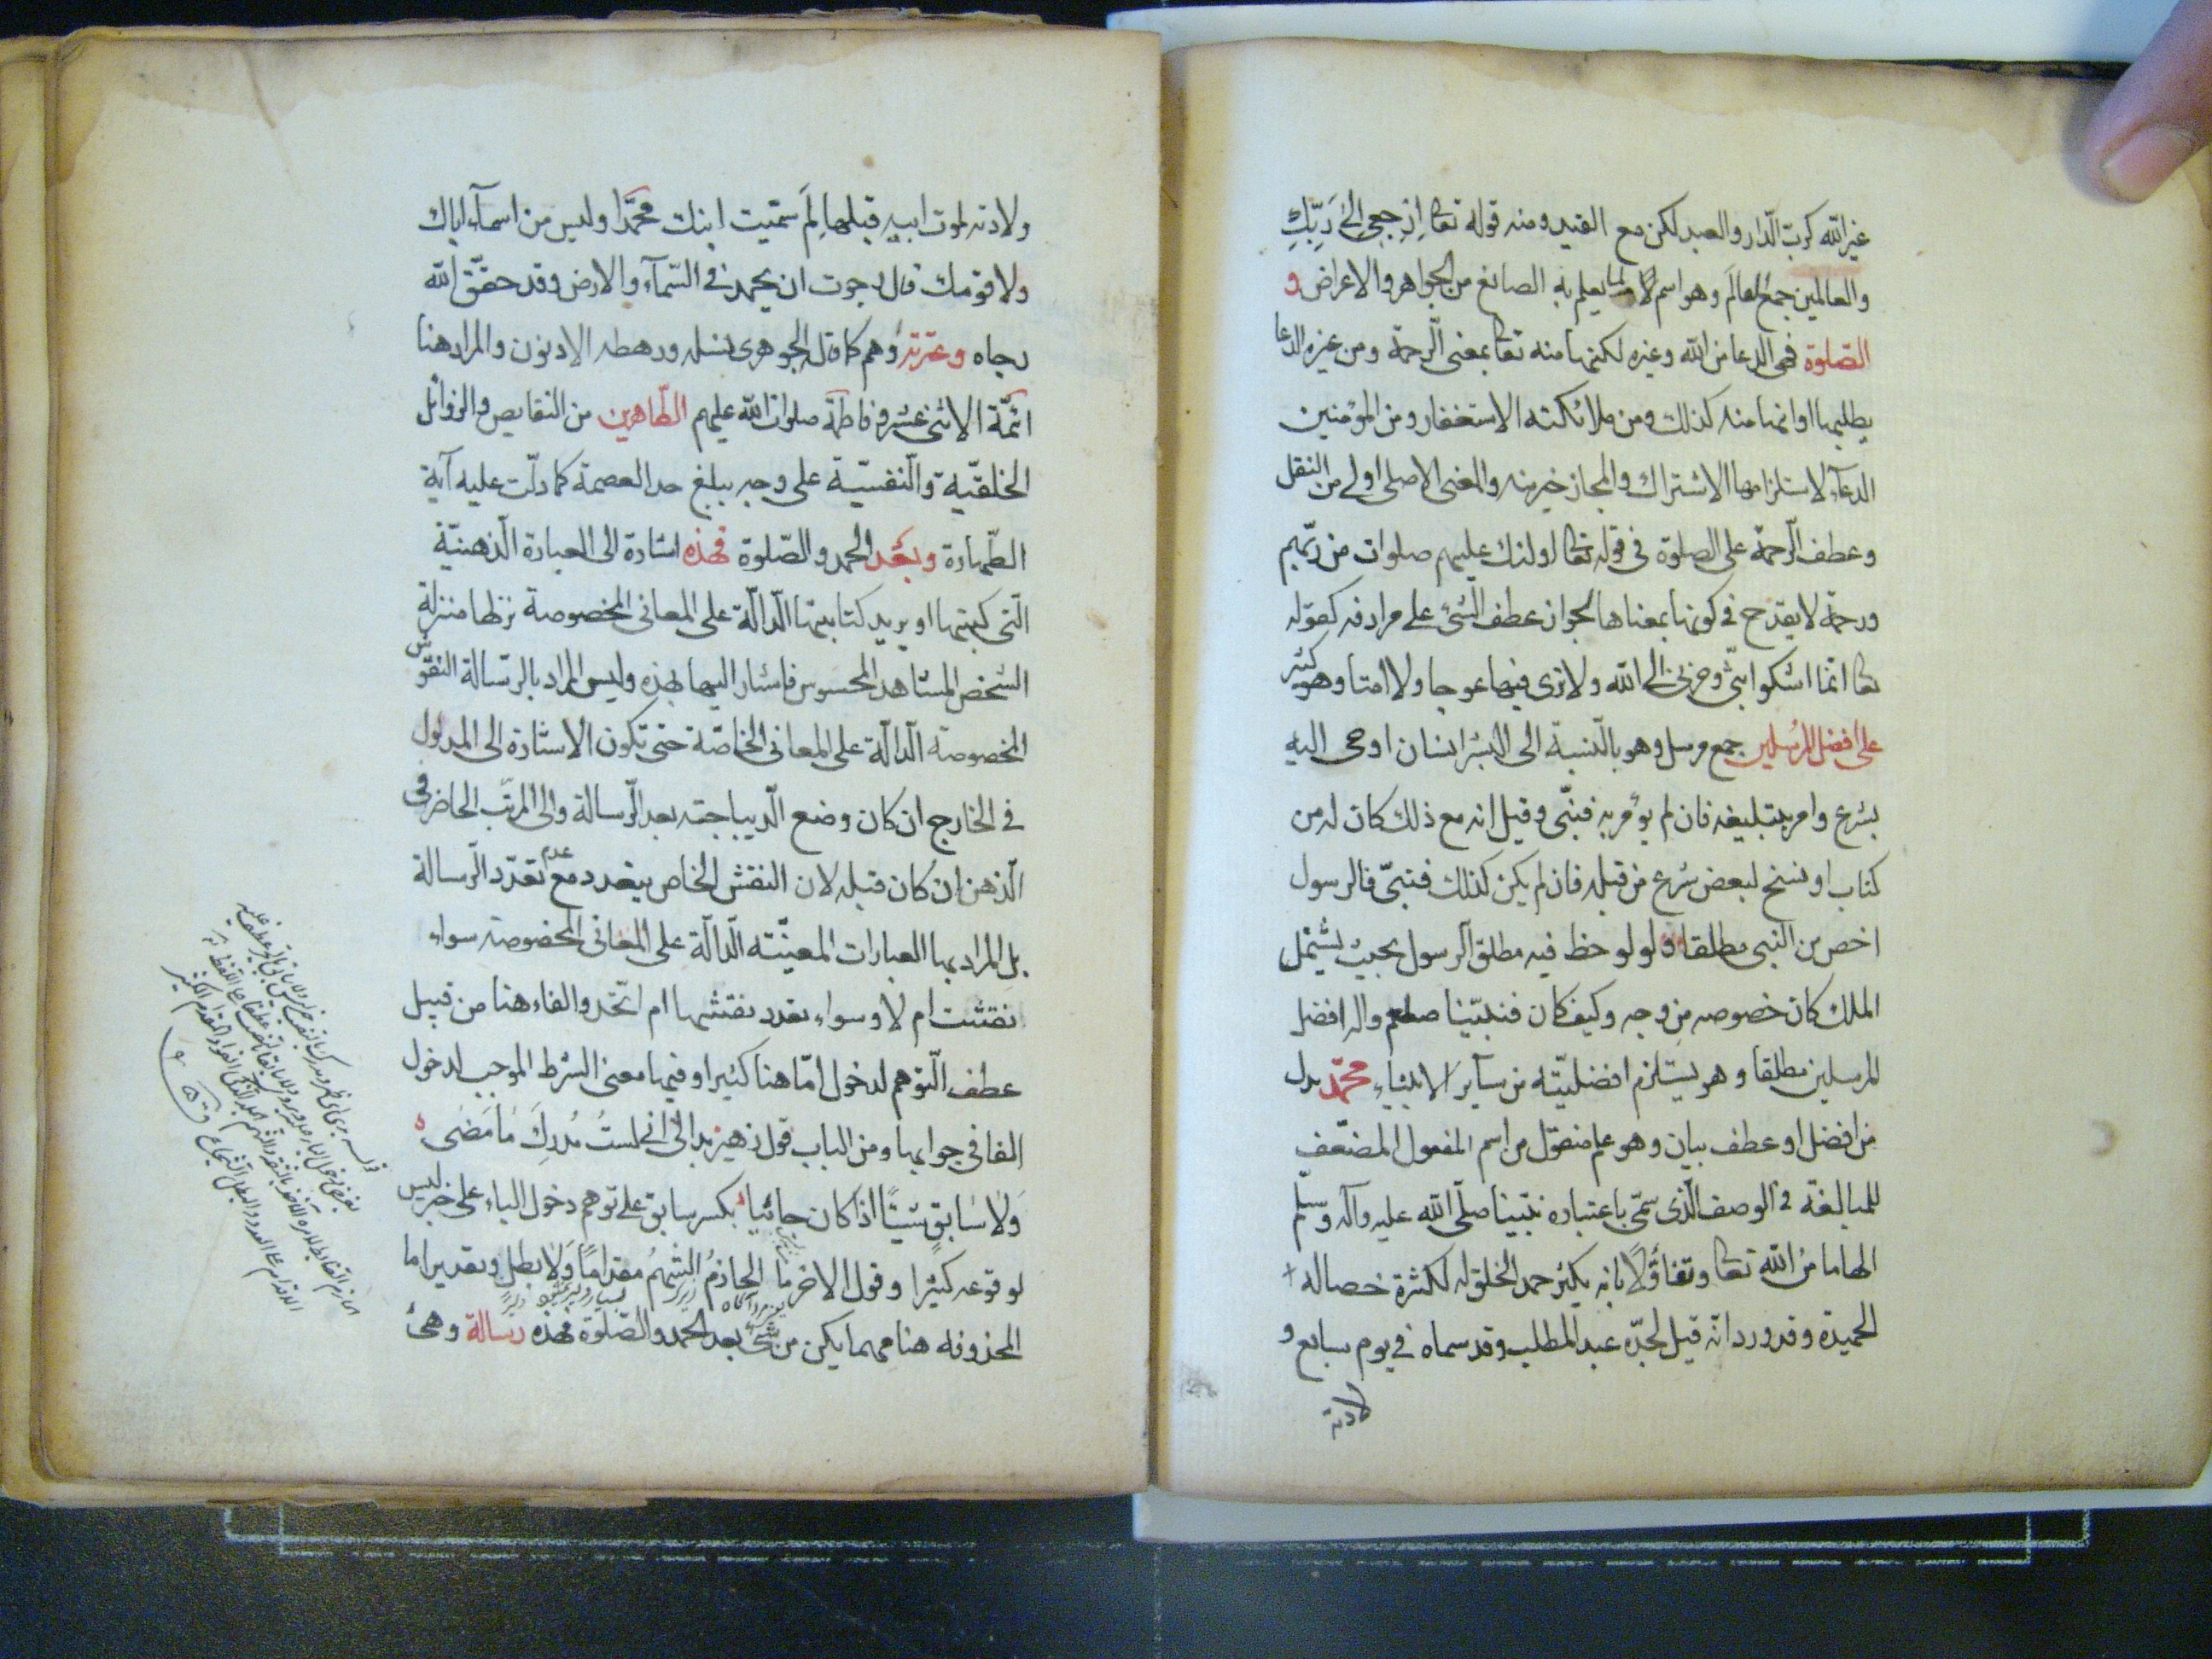 غير الله كرب الدار والعبد لكن مع القيد ومنه قوله تعا اِرْجِعِى اِلىٰ رَبِّكِ
والعالمين جمع العالَم وهو اسم لما يعلم به الصانع من الجواهر والاعراض و
الصّلوة فهى الدعا من الله وغيره لكنها منه تعا بمعنى الرحمة ومن غيره الدعا
يطلبها لا وانها منه كذلك ومن ملائكته الاستغفار ومن المؤمنين
الدعآء لاستلزامها الاشتراك والمجاز خير منه والمعنى الاصلى اولى من النقل
وعطف الرّحمة على الصلوة فى قوله تعا اولئك عليهم صلوات من ربّهم
ورحمة لا يقدح فى كونها بمعناها لجواز عطف الشئ على مرادفه كقوله
تعا انّما اشكوا بثّى وحزنى الى الله ولا ترى فيها عوجا ولا امتا وهو كثير
على افضل المرسلين جمع مرسل وهو بالنّسبة الى البشر انسان اوحى اليه
بشرع وامر بتبليغه فان لم يؤمر به فنبىّ وقيل انه مع ذلك كان له من
كتاب او نسخ لبعض شرع من قبله فان لم يكن كذلك فنبىّ فالرسول
اخص من النبى مطلقا ولو لوحظ فيه مطلق الرسول بحيث يشتمل
الملك كان خصوصه من وجه وكيف كان فنبيّنا صلعم واله افضل
المرسلين مطلقا وهو يستلزم افضليّته من سآير الانبيآء محمّد بدل
من افضل او عطف بيان وهو علم منقول من اسم المفعول المضعّف
للمبالغة فى الوصف الّذى سمّى باعتباره نبيّنا صلّى الله عليه وآله وسلم
الهاما من الله تعا وتفاؤلًا بانه يكثر حمد الخلق له لكثرة خصاله
الحميدة وقد ورد انّه قيل لجدّه عبد المطلب وقد سماه فى يوم سابع و
لادته
ولادته لموت ابيه قبلها لِمَ سمّيت ابنك محمّدا وليس من اسمآء اباك
ولا قومك قال رجوت ان يحمد فى السّمآء والارض وقد حقّق الله
رجاه وعترته وهم كما قال الجوهرى نسله ورهطه الادنون والمراد هنا
ائمّة الاثنى عشر وفاطمة صلوات الله عليهم الطّاهرين من النقايص والرذائل
الخلقيّة والنّفسيّة على وجه يبلغ حد العصمة كما دلّت عليه آية
الطّهارة وبعد الحمد والصّلوة فهذه اشارة الى العبارة الّذهنيّة
الّتى كتبها او يريد كتابتها الّدالّة على المعانى المخصوصة نزلها منزلة
الشخص المشاهد المحسوس فاشار اليها بهذه وليس المراد بالرّسالة النقوش
المخصوصة الّدالّة على المعانى الخاصّة حتى تكون الاشارة الى المدلول
فى الخارج ان كان وضع الّديباجة بعد الرّسالة والى المرتّب الحاضر فى
الّذهن ان كان قبله لان النقش الخاص يتعدد مع عدم تعدّد الّرسالة
بل المراد بها العبارات المعيّنة الّدالّة على المعانى المخصوصة سواء
نقشت ام لا وسواء تعدد نقشها ام اتّحد والفاء هنا من قبيل
عطف الّتوهم لدخول امّا هنا كثيرا وفيها معنى الشرط الموجب لدخول
الفا فى جوابها ومن الباب قول زهير بدا لىَ انى لستُ مُدرِكَ مَا مَضٰى
وَلَا سَابقٍ شيئًا اذا كان جائيا بكسر سابق على توهم دخول الباء على خبر ليس
لوقوعه كثيرا وقول الاخر ما الحازمُ الشهمُ مقدامًا وَلَا بطلٍ وتقدير اما
المحذوفة هنا مهما يكن من شئ بعد الحمد والصّلوة فهذه رسالة وهى